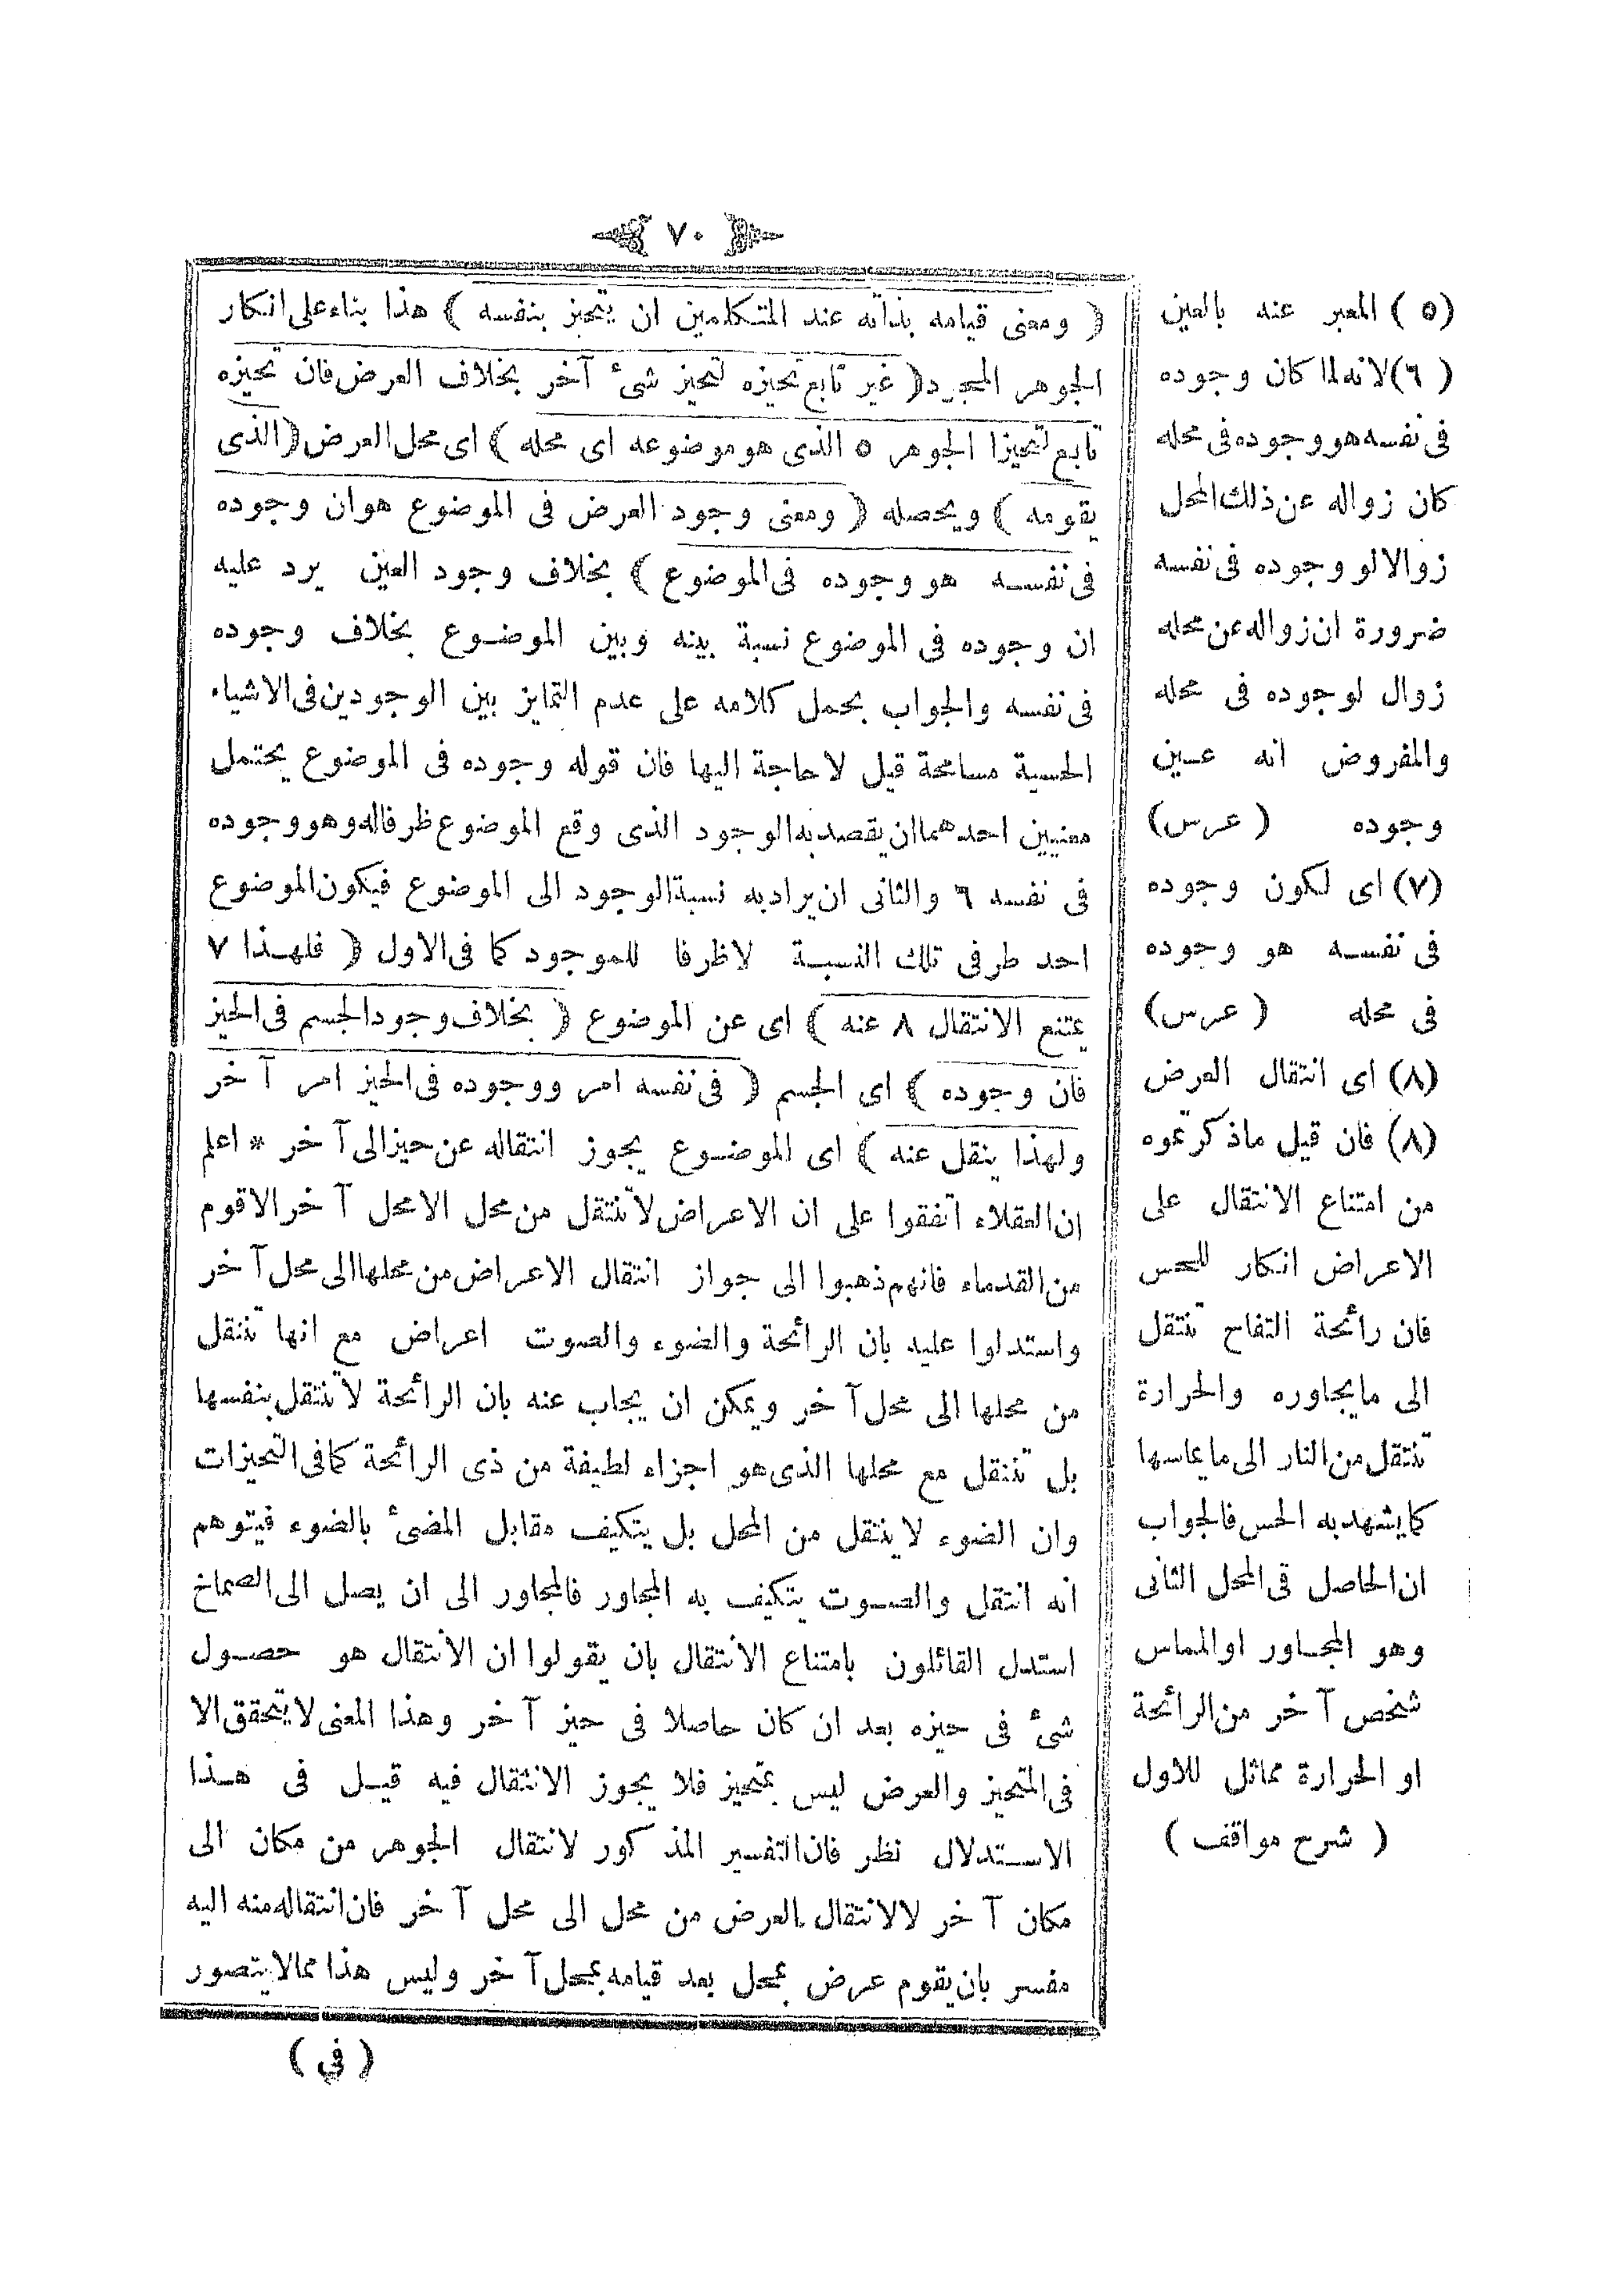 ٧٠
﴿ ومعنى قيامه بذاته عند المتكلمين ان يتحيز بنفسه ﴾ هذا بناء على انكار
الجوهر المجرد ﴿ غير تابع تحيزه لتحيز شئ آخر بخلاف العرض فان تحيزه
تابع لتحيزا الجوهر ٥ الذى هو موضوعه اى محله ﴾ اى محل العرض ﴿ الذى
يقومه ﴾ ويحصله ﴿ ومعنى وجود العرض فى الموضوع هو ان وجوده
فى نفسه هو وجوده فى الموضوع ﴾ بخلاف وجود العين يرد عليه
ان وجوده فى الموضوع نسبة بينه وبين الموضوع بخلاف وجوده
فى نفسه والجواب بحمل كلامه على عدم التمايز بين الوجودين فى الاشياء
الحسية مسامحة قيل لا حاجة اليها فان قوله وجوده فى الموضوع يحتمل
معنيين احدهما ان يقصد به الوجود الذى وقع الموضوع ظرفا له وهو وجوده
فى نفسه ٦ والثانى ان يراد به نسبة الوجود الى الموضوع فيكون الموضوع
احد طرفى تلك النسبة لا ظرفا للموجود كما فى الاول ﴿ فلهذا ٧
يمتنع الانتقال ٨ عنه ﴾ اى عن الموضوع ﴿ بخلاف وجود الجسم فى الحيز
فان وجوده ﴾ اى الجسم ﴿ فى نفسه امر ووجوده فى الحيز امر آخر
ولهذا ينقل عنه ﴾ اى الموضوع يجوز انتقاله عن حيز الى آخر * اعلم
ان العقلاء اتفقوا على ان الاعراض لا تنتقل من محل الا محل آخر الا قوم
من القدماء فانهم ذهبوا الى جواز انتقال الاعراض من محلها الى محل آخر
واستدلوا عليه بان الرائحة والضوء والصوت اعراض مع انها تنتقل
من محلها الى محل آخر ويمكن ان يجاب عنه بان الرائحة لا تنتقل بنفسها
بل تنتقل مع محلها الذى هو اجزاء لطيفة من ذى الرائحة كما فى التحيزات
وان الضوء لا ينتقل من المحل بل يتكيف مقابل المضئ بالضوء فيتوهم
انه انتقل والصوت يتكيف به المجاور فالمجاور الى ان يصل الى الصماخ
استدل القائلون بامتناع الانتقال بان يقولوا ان الانتقال هو حصول
شئ فى حيزه بعد ان كان حاصلا فى حيز آخر وهذا المعنى لا يتحقق الا
فى المتحيز والعرض ليس بمتحيز فلا يجوز الانتقال فيه قيل فى هذا
الاستدلال نظر فان التفسير المذكور لانتقال الجوهر من مكان الى
مكان آخر لا لانتقال العرض من محل الى محل آخر فان انتقاله منه اليه
مفسر بان يقوم عرض بمحل بعد قيامه بمحل آخر وليس هذا مما لا يتصور
( فى )
(٥) المعبر عنه بالعين
(٦) لانه لما كان وجوده
فى نفسه هو وجوده فى محله
كان زواله عن ذلك المحل
زوالا لو وجوده فى نفسه
ضرورة ان زواله عن محله
زوال لوجوده فى محله
والمفروض انه عين
وجوده (عرس)
(٧) اى لكون وجوده
فى نفسه هو وجوده
فى محله (عرس)
(٨) اى انتقال العرض
(٨) فان قيل ما ذكرتموه
من امتناع الانتقال على
الاعراض انكار للحس
فان رائحة التفاح تنتقل
الى ما يجاوره والحرارة
تنتقل من النار الى ما يماسها
كما يشهد به الحس فالجواب
ان الحاصل فى المحل الثانى
وهو المجاور او المماس
شخص آخر من الرائحة
او الحرارة مماثل للاول
( شرح مواقف )